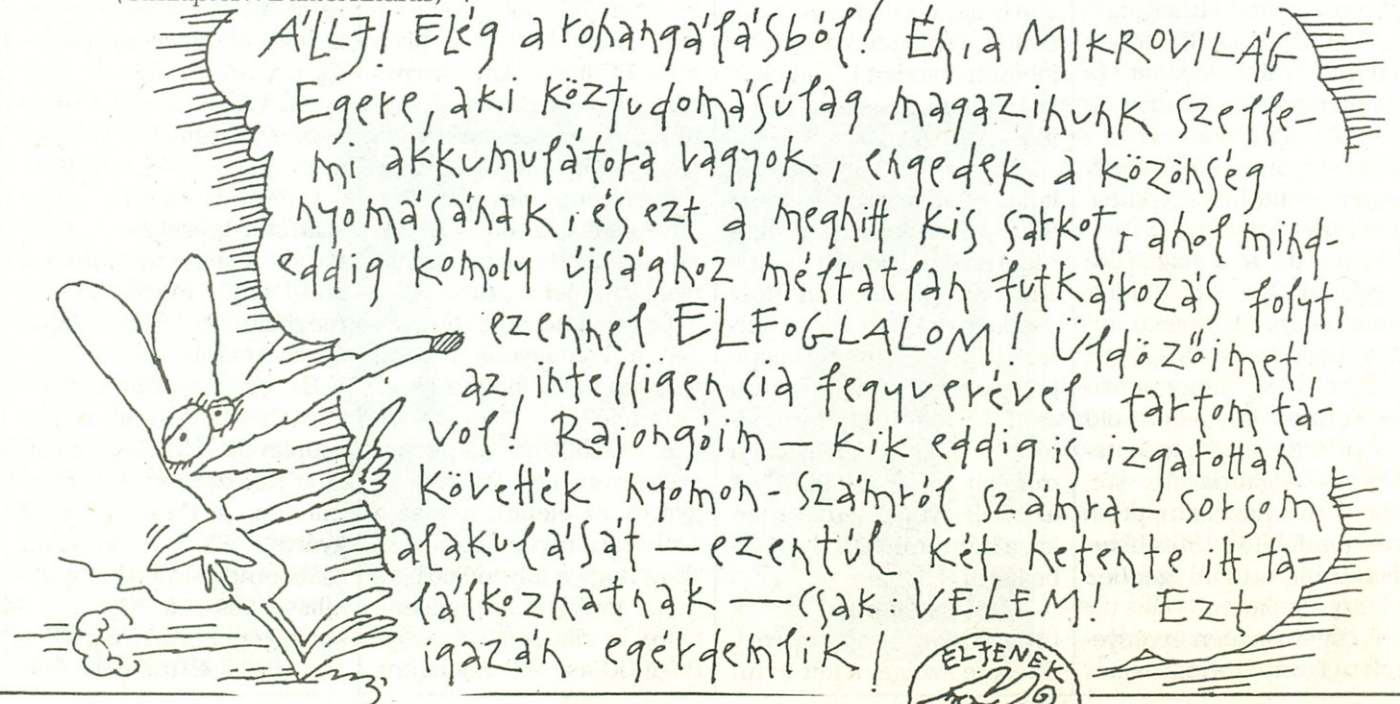 ÁLLJ! Elég a rohangálásból! Én, a MIKROVILÁG
Egere, aki köztudomásúlag magazinunk szelle-
mi akkumulátora vagyok, engedek a közönség
nyomásának, és ezt a meghitt kis sarkot, ahol mind-
eddig komoly újsághoz méltatlan futkározás folyt,
ezennel ELFOGLALOM! Üldözőimet,
az intelligencia fegyverével tartom tá-
vol! Rajongóim — kik eddig is izgatottan
követték nyomon - számról számra sorsom
alakulását — ezentúl hetente itt ta-
lálkozhatnak — csak VELEM! Ezt
igazán egérdemlik!
ÉLJENEK